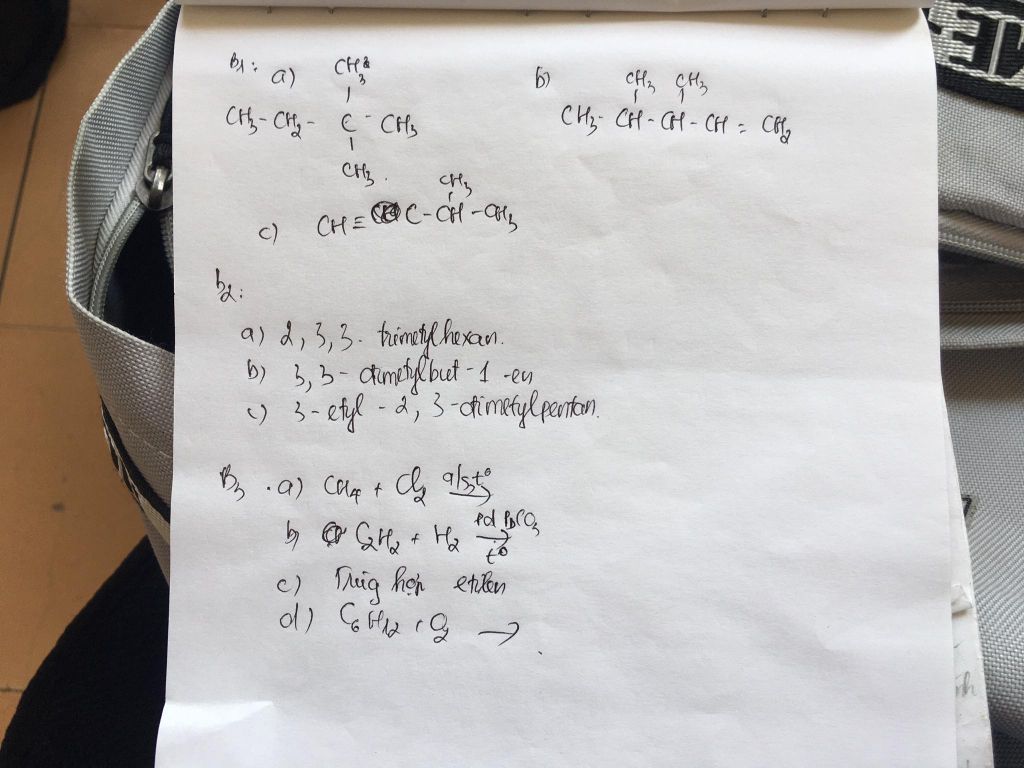 B1: a) CH3
CH3-CH2- C - CH3
CH3.
b) CH3 CH3
CH3- CH - CH - CH = CH2
CH3
c) CH ≡ C - CH - CH3
b2:
a) 2, 3, 3 - trimetylhexan.
b) 3, 3 - đimetylbut - 1 - en
c) 3 - etyl - 2, 3 - đimetylpentan.
B3 . a) CH4 + Cl2 a/s,t°→
b) C2H2 + H2 Pd PbCO3→ t°
c) Trùng hợp etilen
d) C6H12 + O2 →